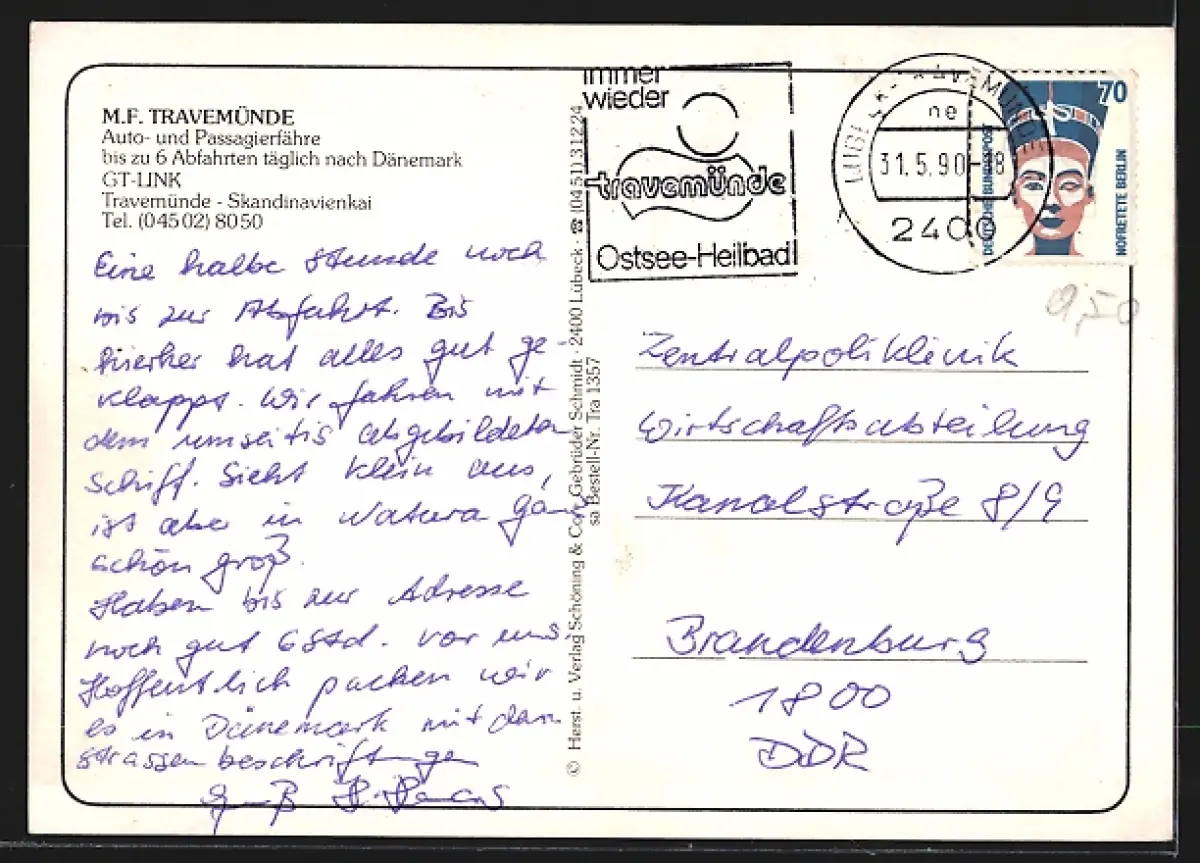 M.F. TRAVEMÜNDE
Auto- und Passagierfähre
bis zu 6 Abfahrten täglich nach Dänemark
GT-LINK
Travemünde - Skandinavienkai
Tel. (04502) 8050
Eine halbe Stunde noch
bis zur Abfahrt. Bis
hierher hat alles gut ge-
klappt. Wir fahren mit
dem umseitig abgebildeten
Schiff. Sieht klein aus,
ist aber in Natura ganz
schön groß.
Haben bis zur Adresse
noch gut 6 Std. vor uns
Hoffentlich packen wir
es in Dänemark mit den
strassenbeschriftungen
Gruß H.
© Herst. u. Verlag Schöning & Co + Gebrüder Schmidt · 2400 Lübeck · ☎ (0451) 31224
sa Bestell-Nr. Tra 1357
immer
wieder
travemünde
Ostsee-Heilbad
LÜBECK-TRAVEMÜNDE
ne
31.5.90-18
2400
70
DEUTSCHE BUNDESPOST
NOFRETETE BERLIN
0,50
Zentralpoliklinik
Wirtschaftsabteilung
Kanalstraße 8/9
Brandenburg
1800
DDR